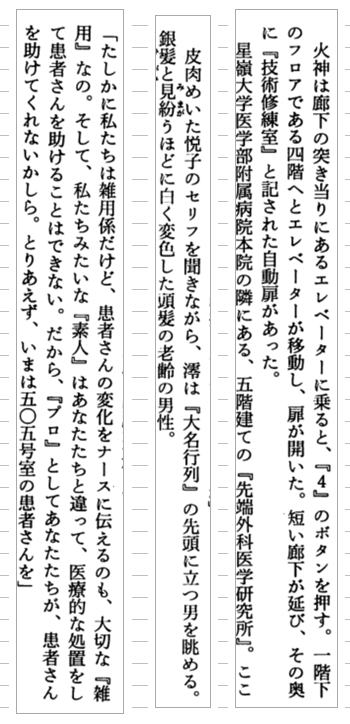 火神は廊下の突き当りにあるエレベーターに乗ると、『4』のボタンを押す。一階下
のフロアである四階へとエレベーターが移動し、扉が開いた。短い廊下が延び、その奥
に『技術修練室』と記された自動扉があった。
星嶺大学医学部附属病院本院の隣にある、五階建ての『先端外科医学研究所』。ここ
皮肉めいた悦子のセリフを聞きながら、澪は『大名行列』の先頭に立つ男を眺める。
銀髪と見紛うほどに白く変色した頭髪の老齢の男性。
「たしかに私たちは雑用係だけど、患者さんの変化をナースに伝えるのも、大切な『雑
用』なの。そして、私たちみたいな『素人』はあなたたちと違って、医療的な処置をし
て患者さんを助けることはできない。だから、『プロ』としてあなたたちが、患者さん
を助けてくれないかしら。とりあえず、いまは五〇五号室の患者さんを」